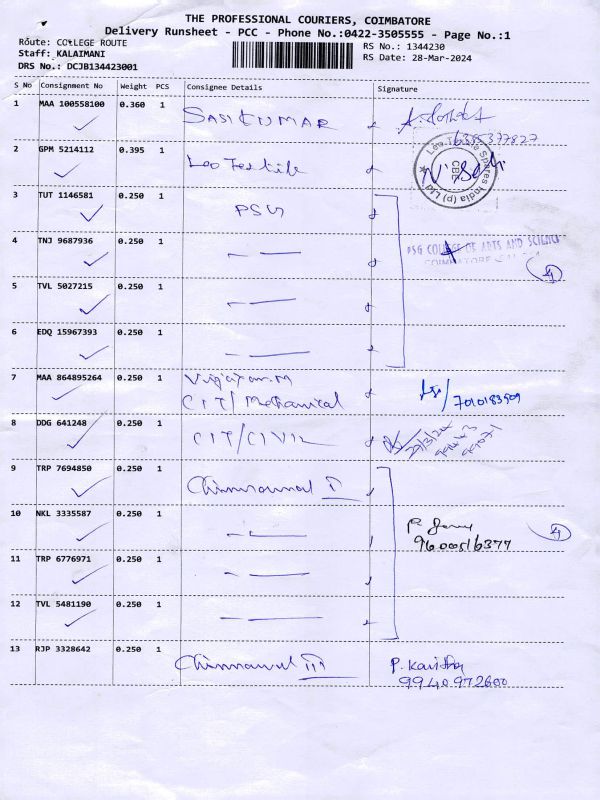 THE PROFESSIONAL COURIERS, COIMBATORE
Delivery Runsheet - PCC - Phone No.:0422-3505555 - Page No.:1
Route: COLLEGE ROUTE
RS No.: 1344230
Staff: KALAIMANI
RS Date: 28-Mar-2024
DRS No.: DCJB134423001
S No Consignment No Weight PCS Consignee Details Signature
1 MAA 100558100 0.360 1 SASIKUMAR
6385377827
2 GPM 5214112 0.395 1 Leo Textile
3 TUT 1146581 0.250 1 PSG
4 TNJ 9687936 0.250 1
PSG COLLEGE OF ARTS AND SCIENCE
COIMBATORE
5 TVL 5027215 0.250 1
6 EDQ 15967393 0.250 1
7 MAA 864895264 0.250 1
CIT/Mechanical
7010183509
8 DDG 641248 0.250 1 CIT/CIVIL
9 TRP 7694850 0.250 1
10 NKL 3335587 0.250 1
9600516377
11 TRP 6776971 0.250 1
12 TVL 5481190 0.250 1
13 RJP 3328642 0.250 1 III
9940972600